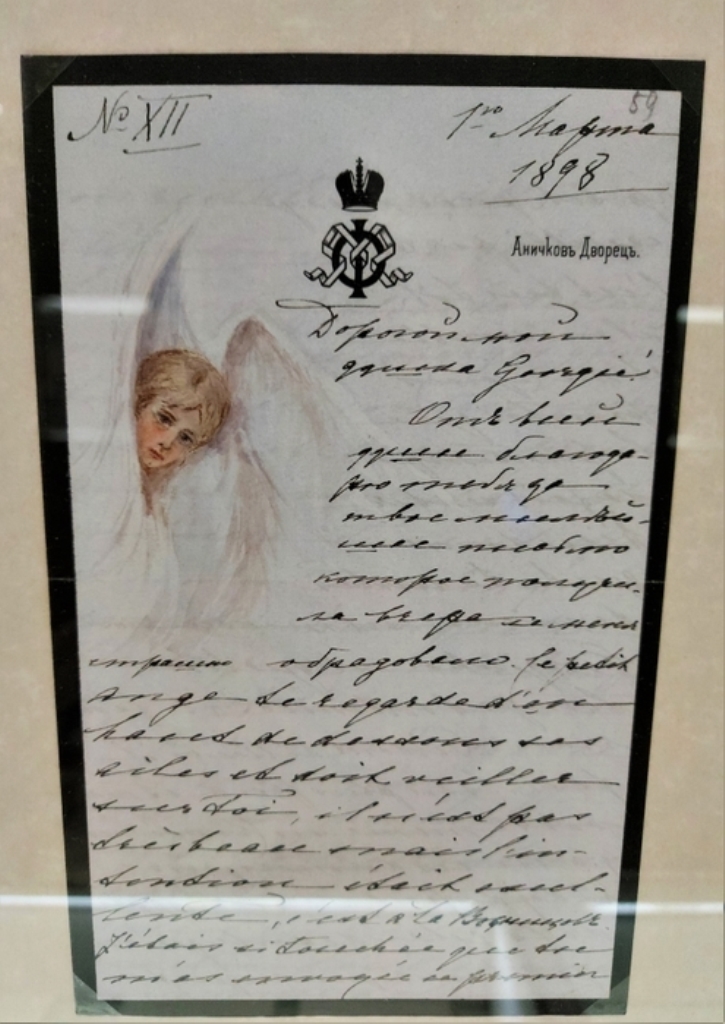 № XII
59
1го Марта
1898
Аничковъ Дворецъ.
Дорогой мой
душка Georgie!
Отъ всей
души благода-
рю тебя за
твое милѣй-
шее письмо
которое получи-
ла вчера и меня
страшно обрадовало. Ce petit
ange te regarde d'en
haut de dessous ses
ailes et doit veiller
sur Toi, il n'est pas
très beau mais l'in-
tention était excel-
lente, c'est à la
J'étais si touchée que tu
m'as envoyé ce premier